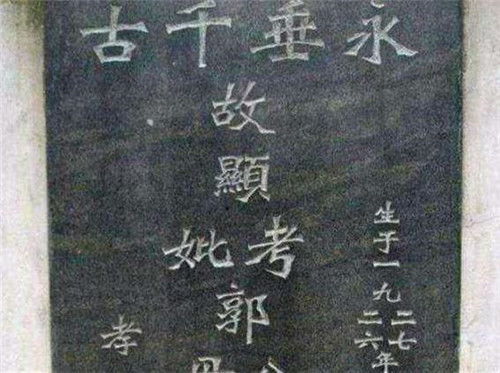 永垂千古
生于一九二七年
二六
故顯考妣郭
孝